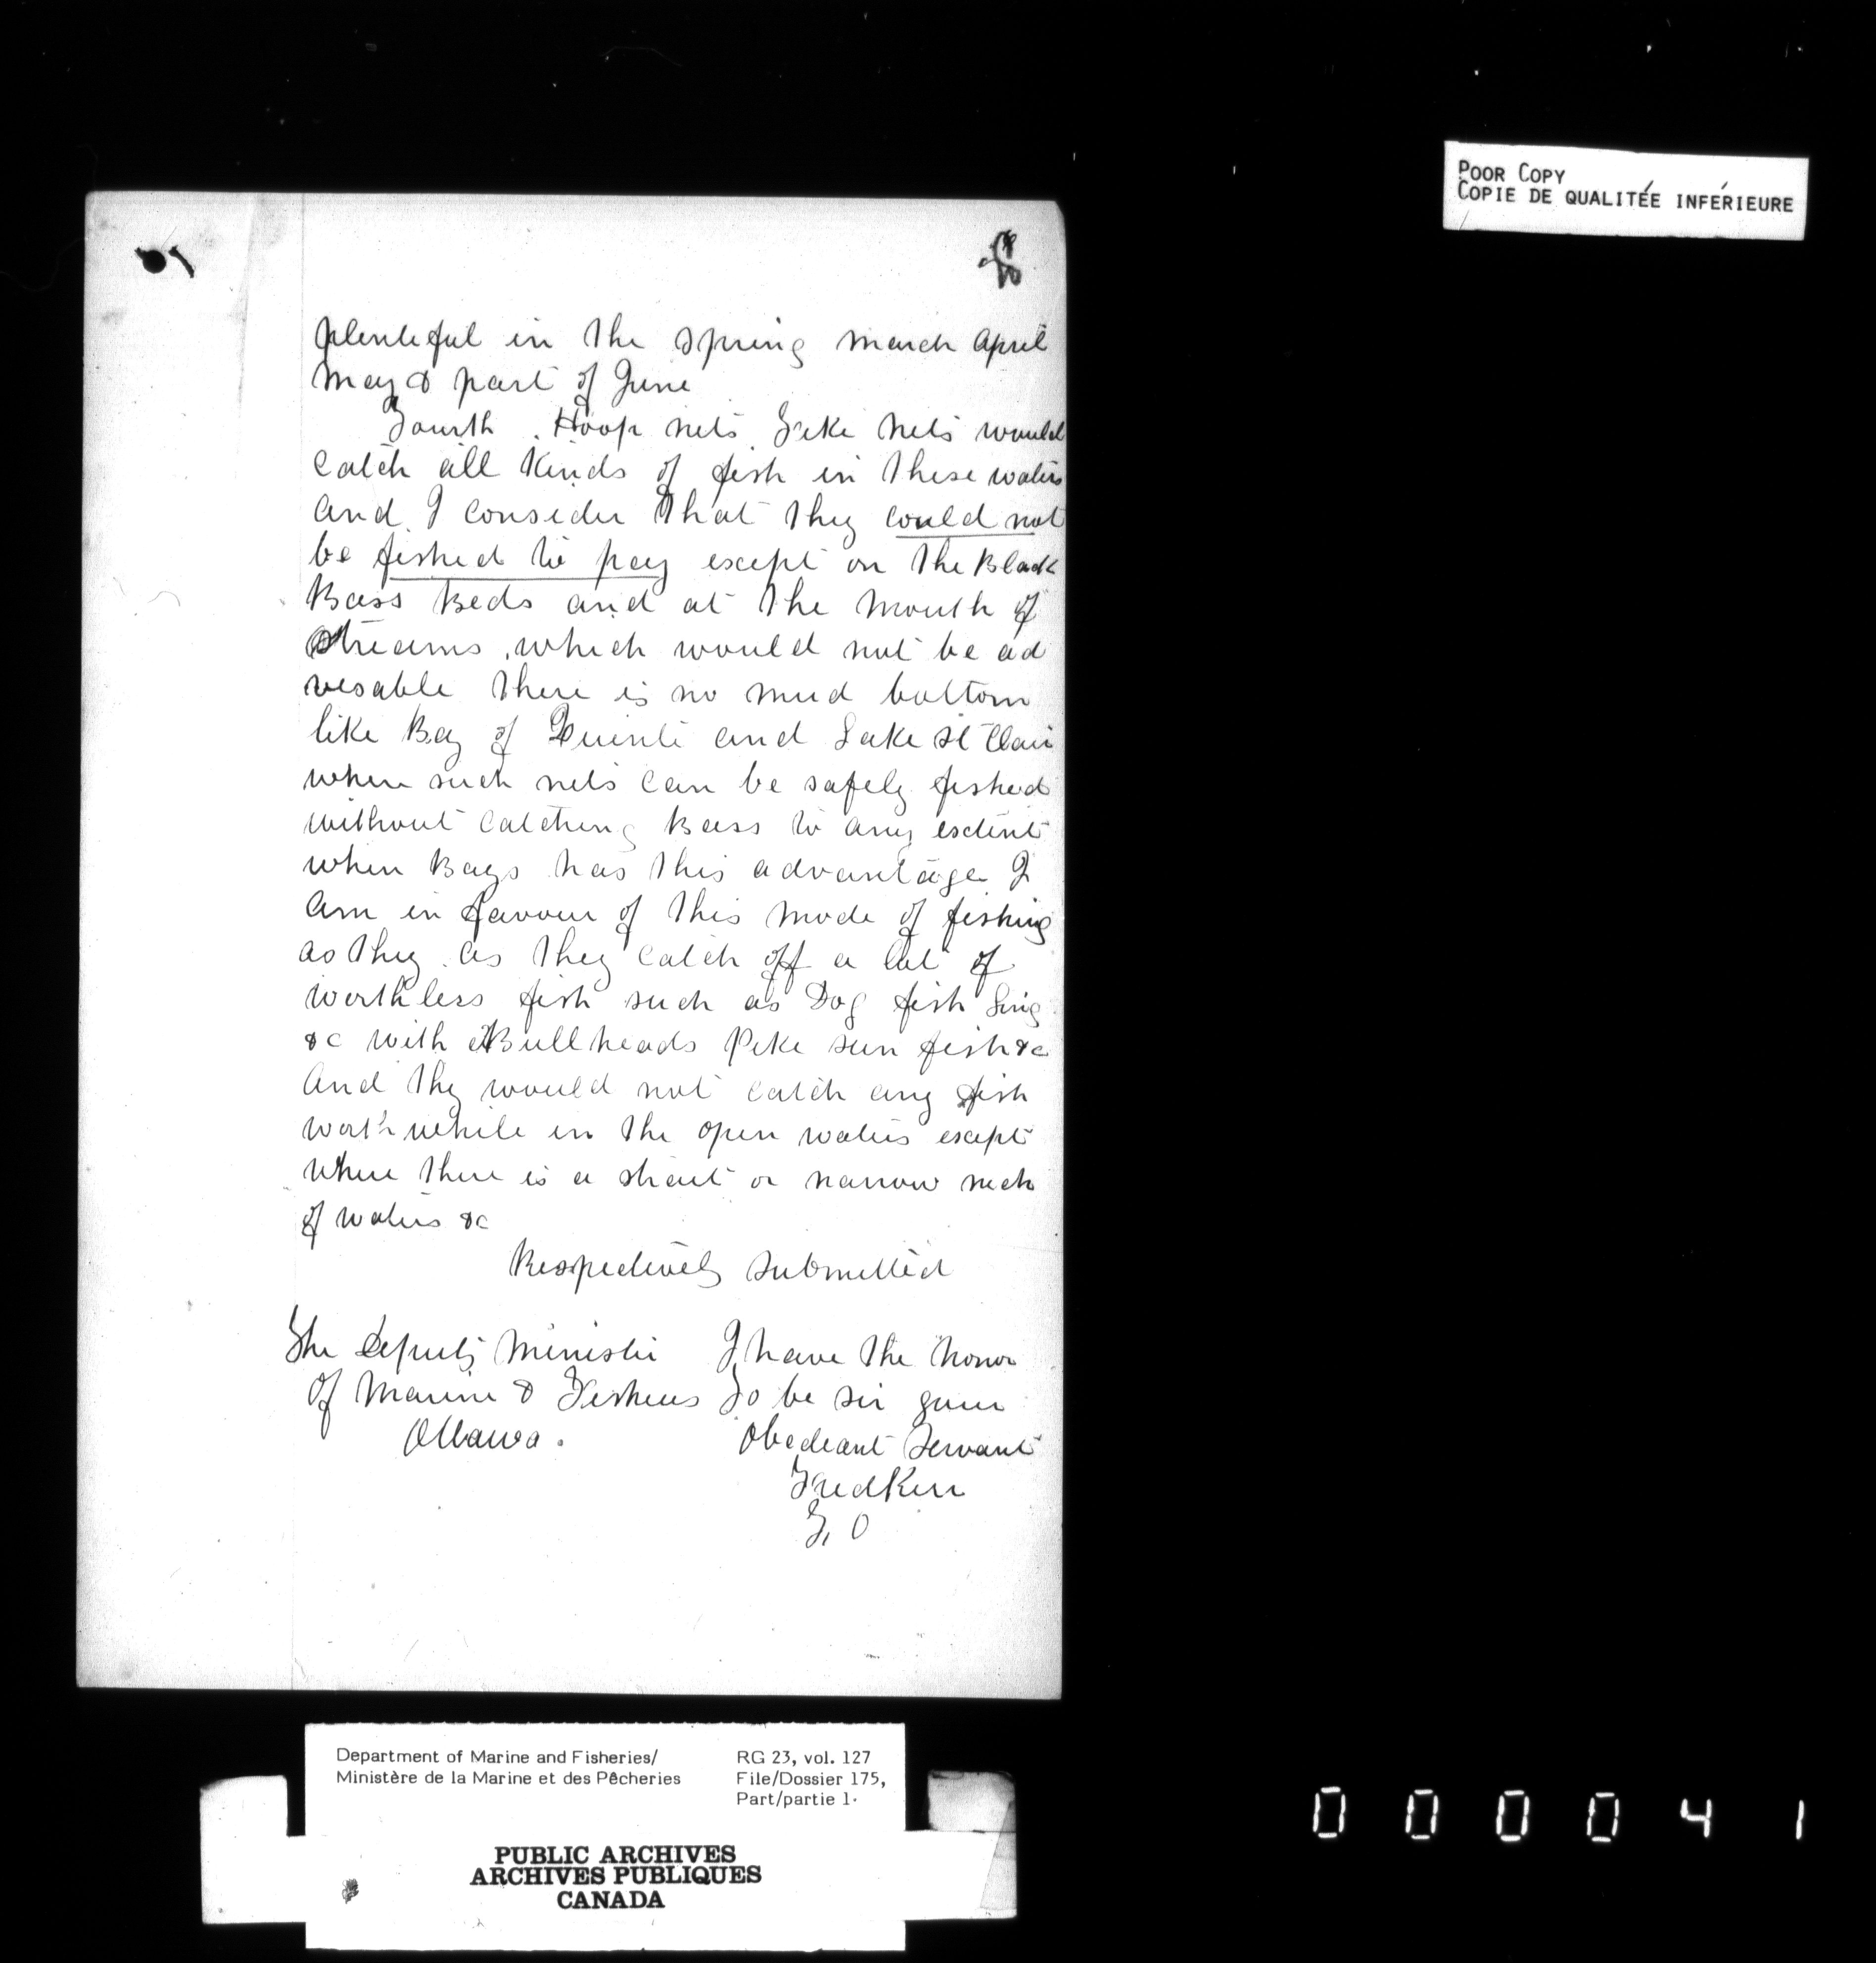 POOR COPY
COPIE DE QUALITÉE INFÉRIEURE
plenteful in the spring march april
may & part of June
Fourth. Hoop nets Fike nets would
catch all kinds of fish in these waters
and I consider that they could not
be fished to pay except on the Black
Bass Beds and at the mouth of
streams, which would not be ad
vesable there is no mud bottom
like Bay of Quinte and Lake St Clair
where such nets can be safely fished
without catching Bass to any extent
when Bays has this advantage I
am in favour of this mode of fishing
as they as they catch off a lot of
worthless fish such as Dog fish Ling
&c with Bullheads Pike sun fish &c
and they would not catch any fish
worth while in the open waters except
where there is a strait or narrow neck
of waters &c
Respectively submitted
The Deputy Minister I have the honor
Of Marine & Fisheries To be sir your
Ottawa. Obedeant Servant
Fred Kerr
F. O
Department of Marine and Fisheries/ RG 23, vol. 127
Ministère de la Marine et des Pêcheries File/Dossier 175,
Part/partie 1.
PUBLIC ARCHIVES
ARCHIVES PUBLIQUES
CANADA
000041